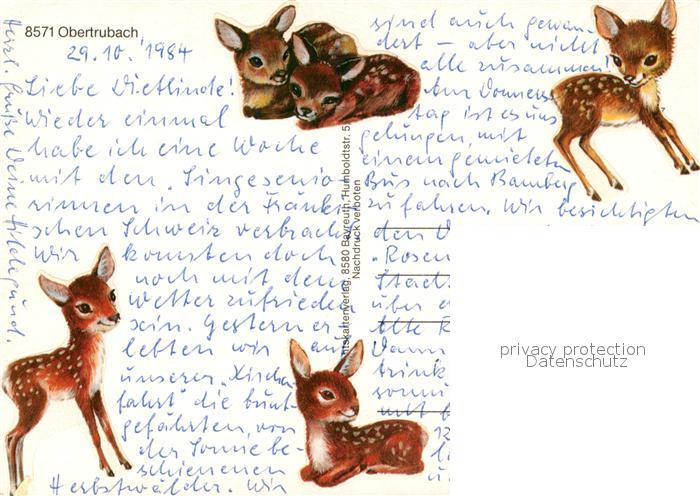 8571 Obertrubach
29.10.1984
Liebe Dietlinde!
Wieder einmal
habe ich eine Woche
mit den "Singesenio-
rinnen in der Fränki-
schen Schweiz verbracht.
Wir konnten doch
noch mit dem
Wetter zufrieden
sein. Gestern er-
lebten wir auf
unserer "Kirch-
fahrt" die bunt-
gefährten, von
der Sonne be-
schienenen
Herbstwälder. Wir
sind auch gewan-
dert - aber nicht
alle zusammen!
Am Donners-
tag ist es uns
gelungen, mit
einem gemieteten
Bus nach Bamberg
zu fahren. Wir besichtigten
den
"Rosen
Stad
über
Alte
Dann
trink
sonni
mit
12
Herzl. Grüße Deine Hildegund.
8580 Bayreuth, Humboldtstr. 5
Nachdruck verboten
privacy protection
Datenschutz